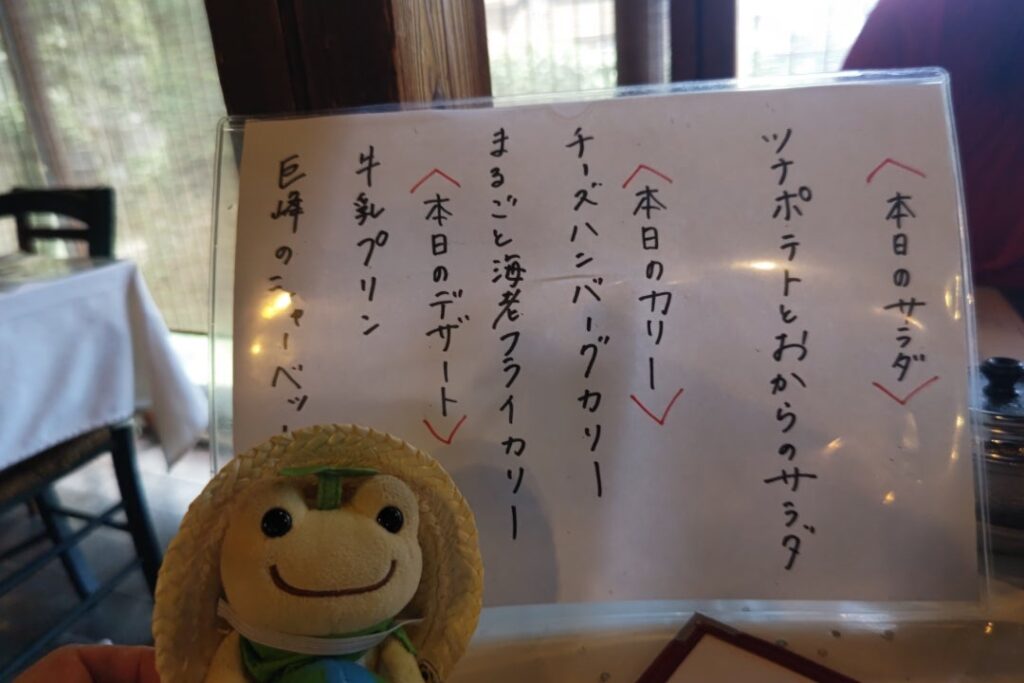 〈本日のサラダ〉
ツナポテトとおからのサラダ
〈本日のカリー〉
チーズハンバーグカリー
まるごと海老フライカリー
〈本日のデザート〉
牛乳プリン
巨峰のシャーベッ